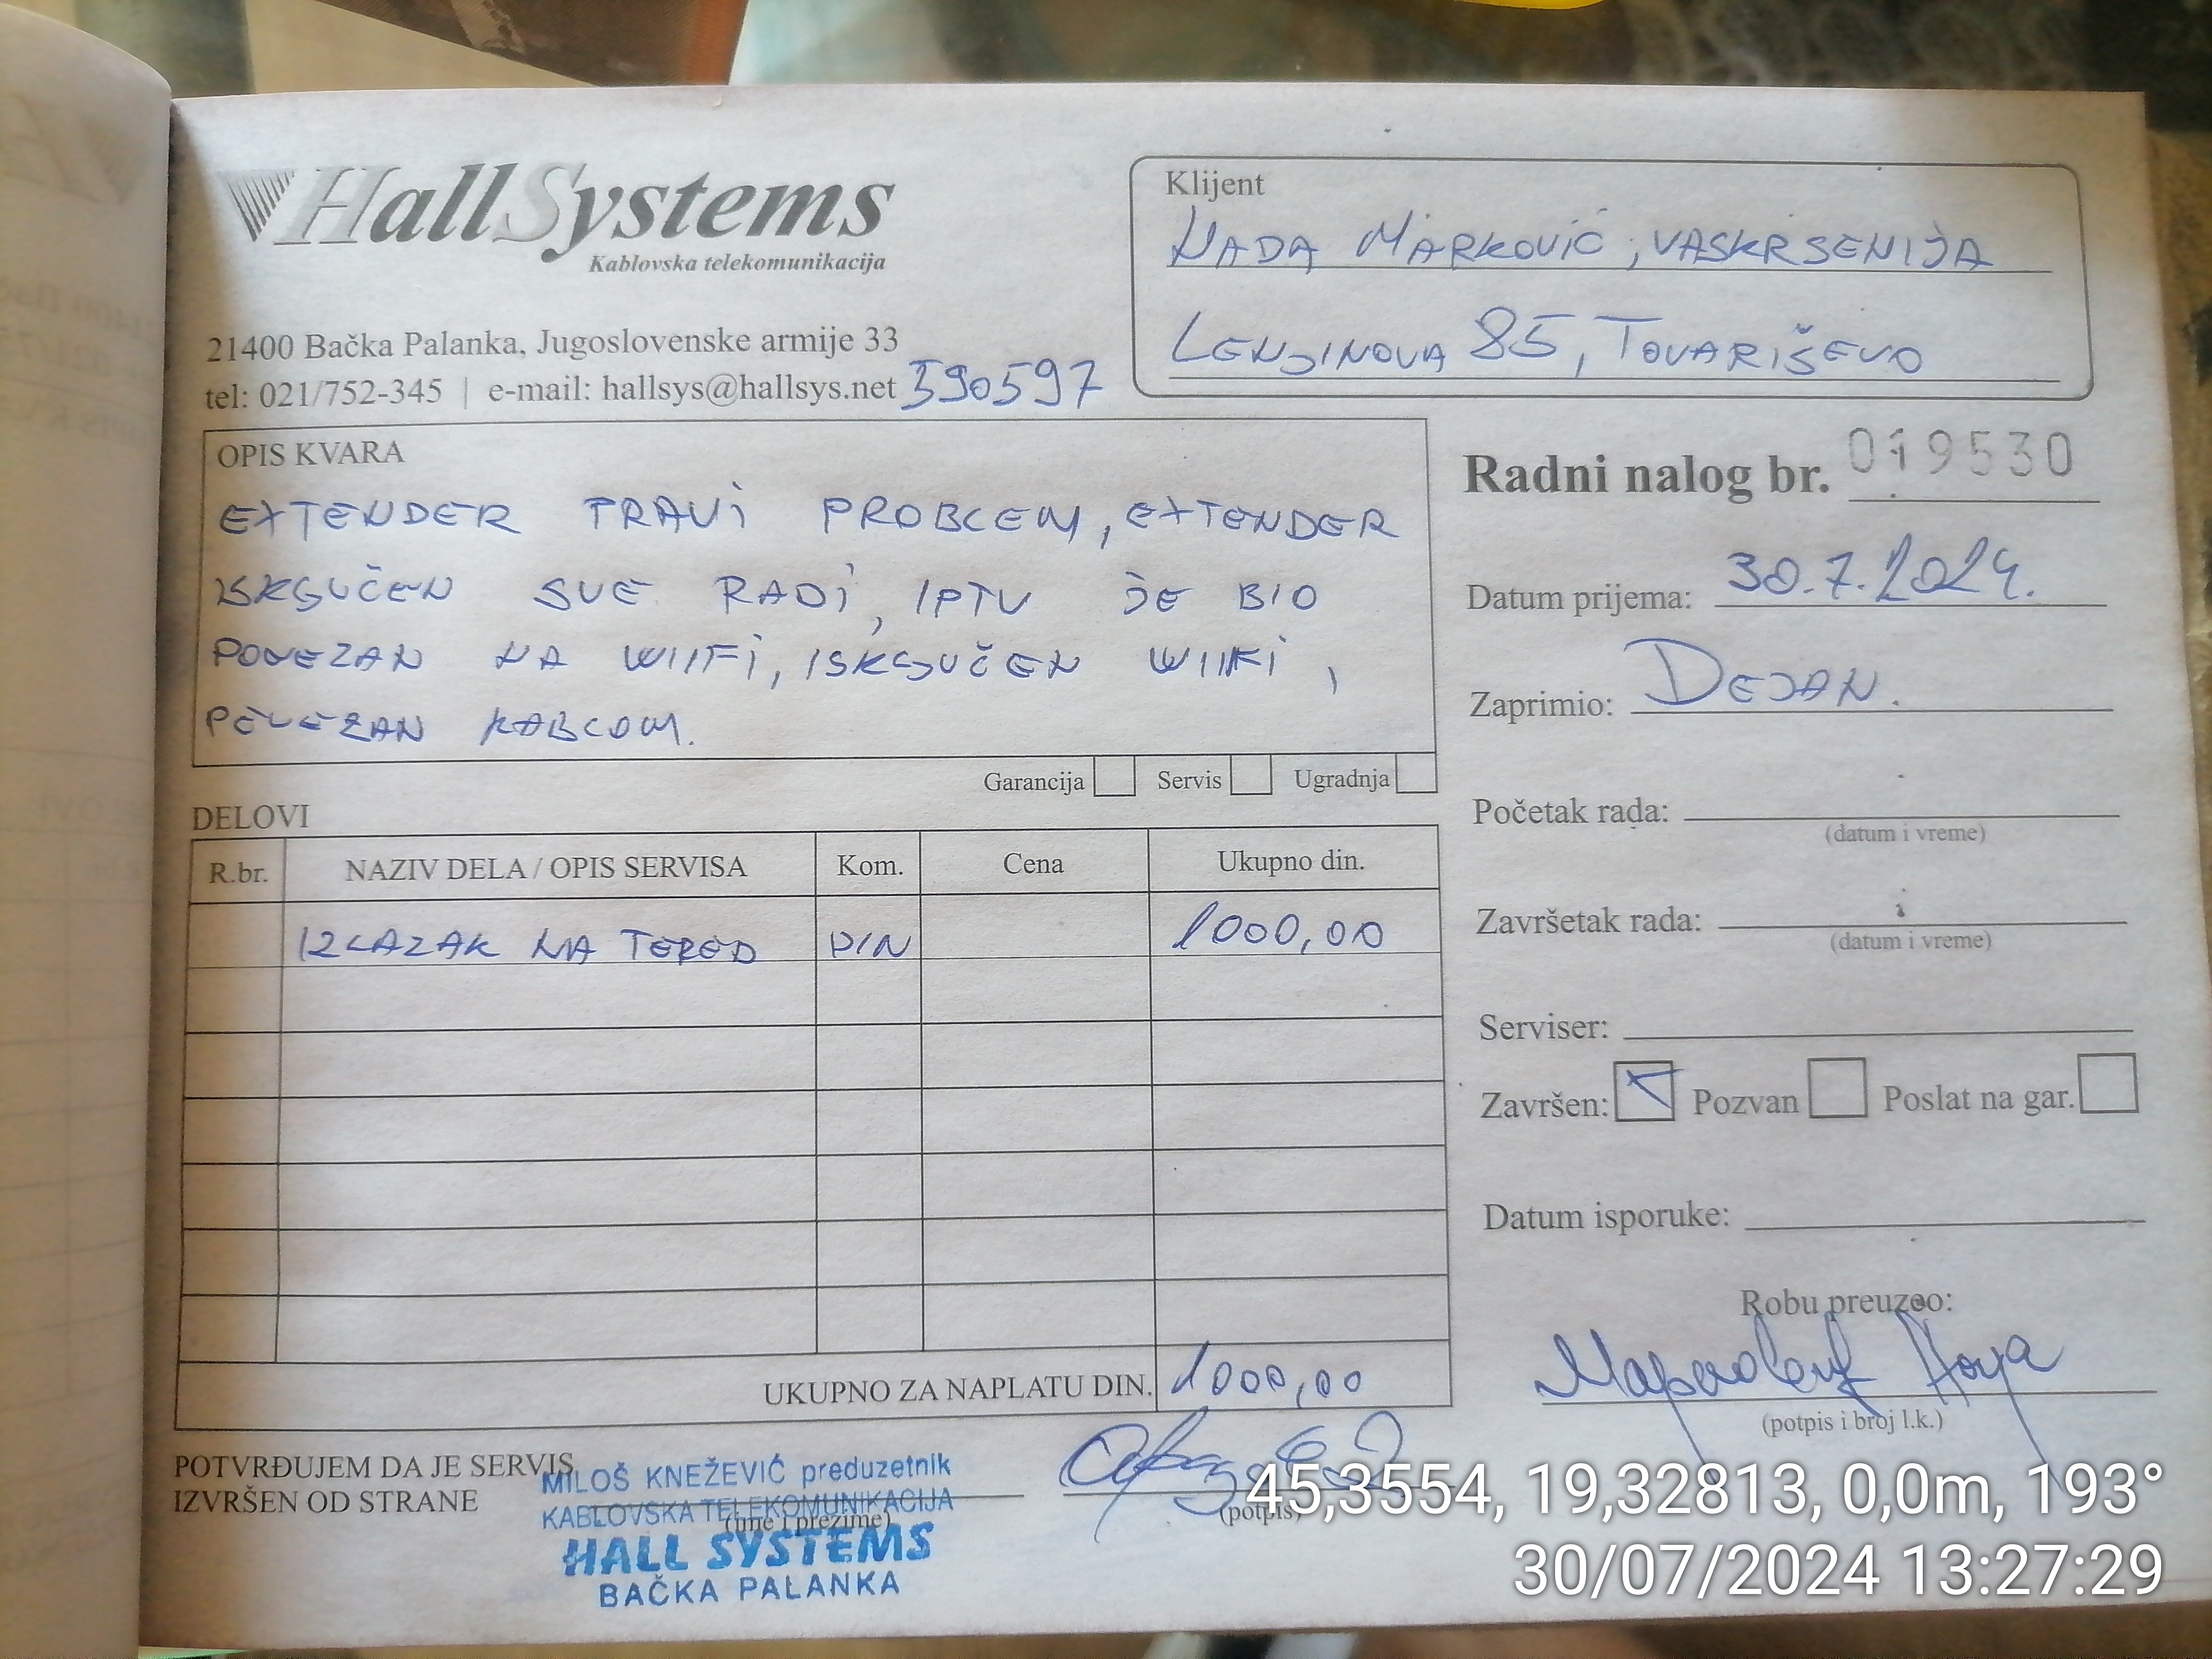 HallSystems
Kablovska telekomunikacija
21400 Bačka Palanka, Jugoslovenske armije 33
tel: 021/752-345 | e-mail: hallsys@hallsys.net 590597
Klijent
NADA MARKOVIĆ, VASKRSENIJA
LENJINOVA 85, TOVARIŠEVO
OPIS KVARA
EXTENDER PRAVI PROBLEM, EXTENDER
ISKLJUČEN SVE RADI, IPTV JE BIO
POVEZAN NA WIIFI, ISKLJUČEN WIIFI,
POVEZAN KABLOM.
Garancija Servis Ugradnja
Radni nalog br. 019530
Datum prijema: 30.7.2024.
Zaprimio: DEJAN.
Početak rada:
(datum i vreme)
Završetak rada:
(datum i vreme)
Serviser:
Završen: Pozvan Poslat na gar.
Datum isporuke:
Robu preuzeo:
(potpis i broj l.k.)
DELOVI
R.br. NAZIV DELA / OPIS SERVISA Kom. Cena Ukupno din.
IZLAZAK NA TEREN DIN 1000,00
UKUPNO ZA NAPLATU DIN. 1000,00
POTVRĐUJEM DA JE SERVIS
IZVRŠEN OD STRANE
(ime i prezime)
(potpis)
MILOŠ KNEŽEVIĆ preduzetnik
KABLOVSKA TELEKOMUNIKACIJA
HALL SYSTEMS
BAČKA PALANKA
45,3554, 19,32813, 0,0m, 193°
30/07/2024 13:27:29